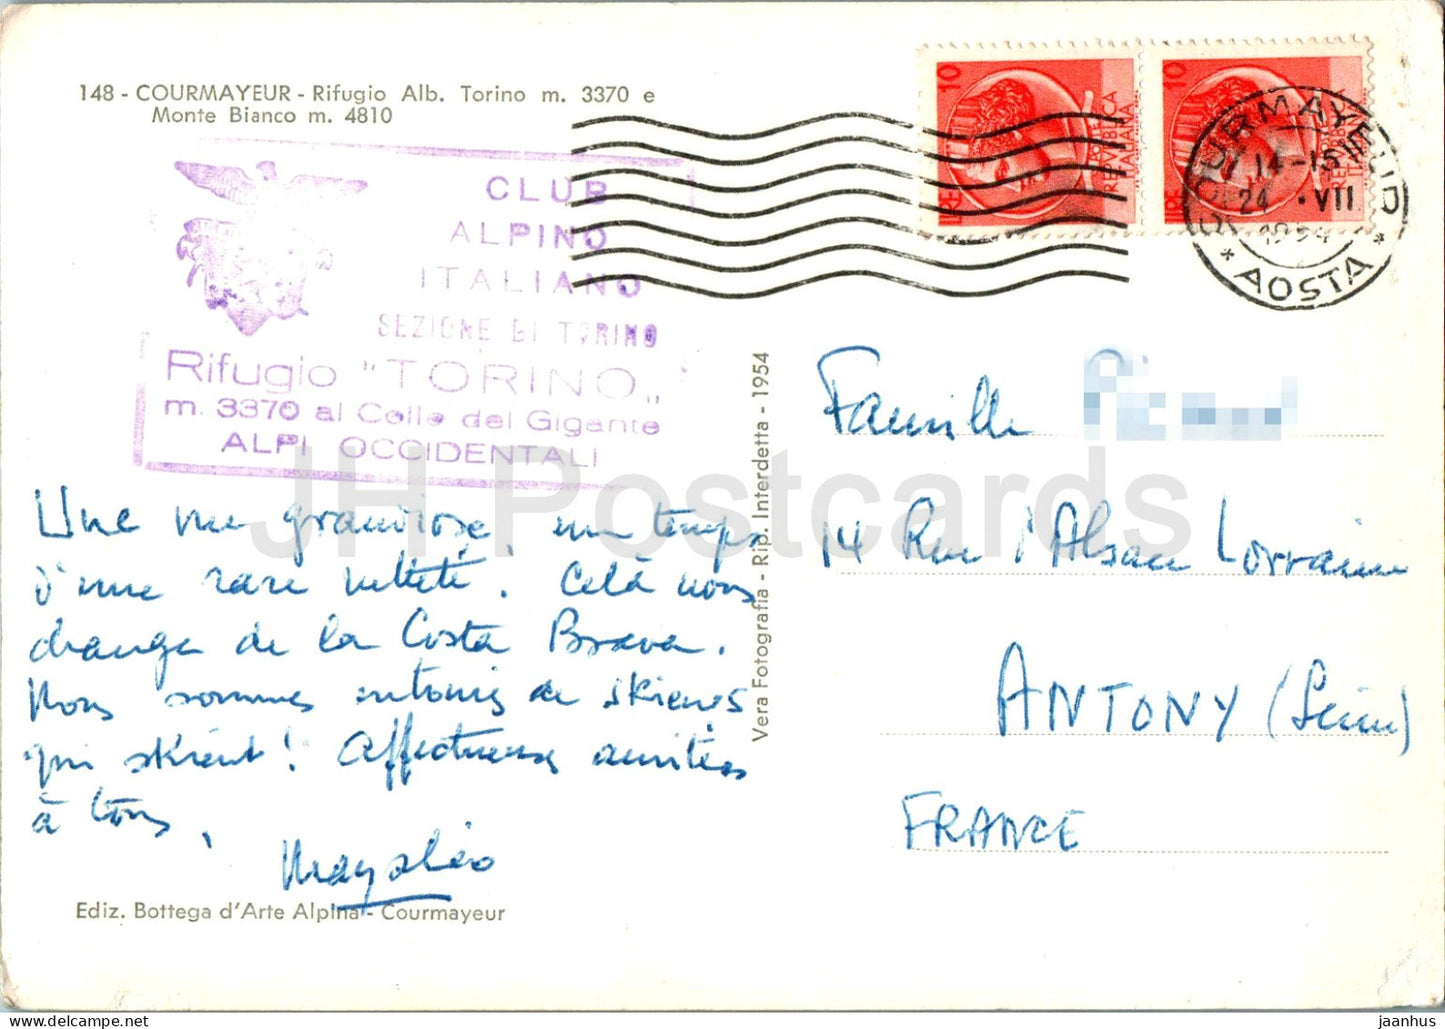 148 - COURMAYEUR - Rifugio Alb. Torino m. 3370 e
Monte Bianco m. 4810
CLUB
ALPINO
ITALIANO
SEZIONE DI TORINO
Rifugio "TORINO„
m. 3370 al Colle del Gigante
ALPI OCCIDENTALI
10
LIRE
REPVBBLICA
ITALIANA
10
LIRE
REPVBBLICA
ITALIANA
COURMAYEUR
14-15
24 · VII
1954
* AOSTA *
Une vue grandiose, un temps
d'une rare netteté. Celà nous
change de la Costa Brava.
Nous sommes entourés de skieurs
qui skient! Affectueuses amitiés
à tous,
Ediz. Bottega d'Arte Alpina - Courmayeur
Vera Fotografia - Rip. Interdetta - 1954
Famille
14 Rue d'Alsace Lorraine
ANTONY (Seine)
FRANCE
JH Postcards
jaanhus